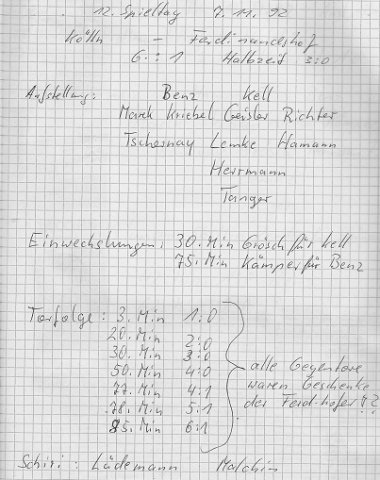 12. Spieltag 7.11.92
Kölln - Ferdinandshof
6 : 1 Halbzeit 3:0
Aufstellung: Benz Kell
Marek Kriebel Geisler Richter
Tschernay Lemke Hamann
Herrmann
Tanger
Einwechslungen: 30. Min Grösch für Kell
75. Min Kämper für Benz
Torfolge: 3. Min 1:0
20. Min 2:0
30. Min 3:0
50. Min 4:0
77. Min 4:1
78. Min 5:1
85. Min 6:1
alle Gegentore
waren Geschenke
der Ferd.hofer!?
Schiri: Lüdemann Malchin